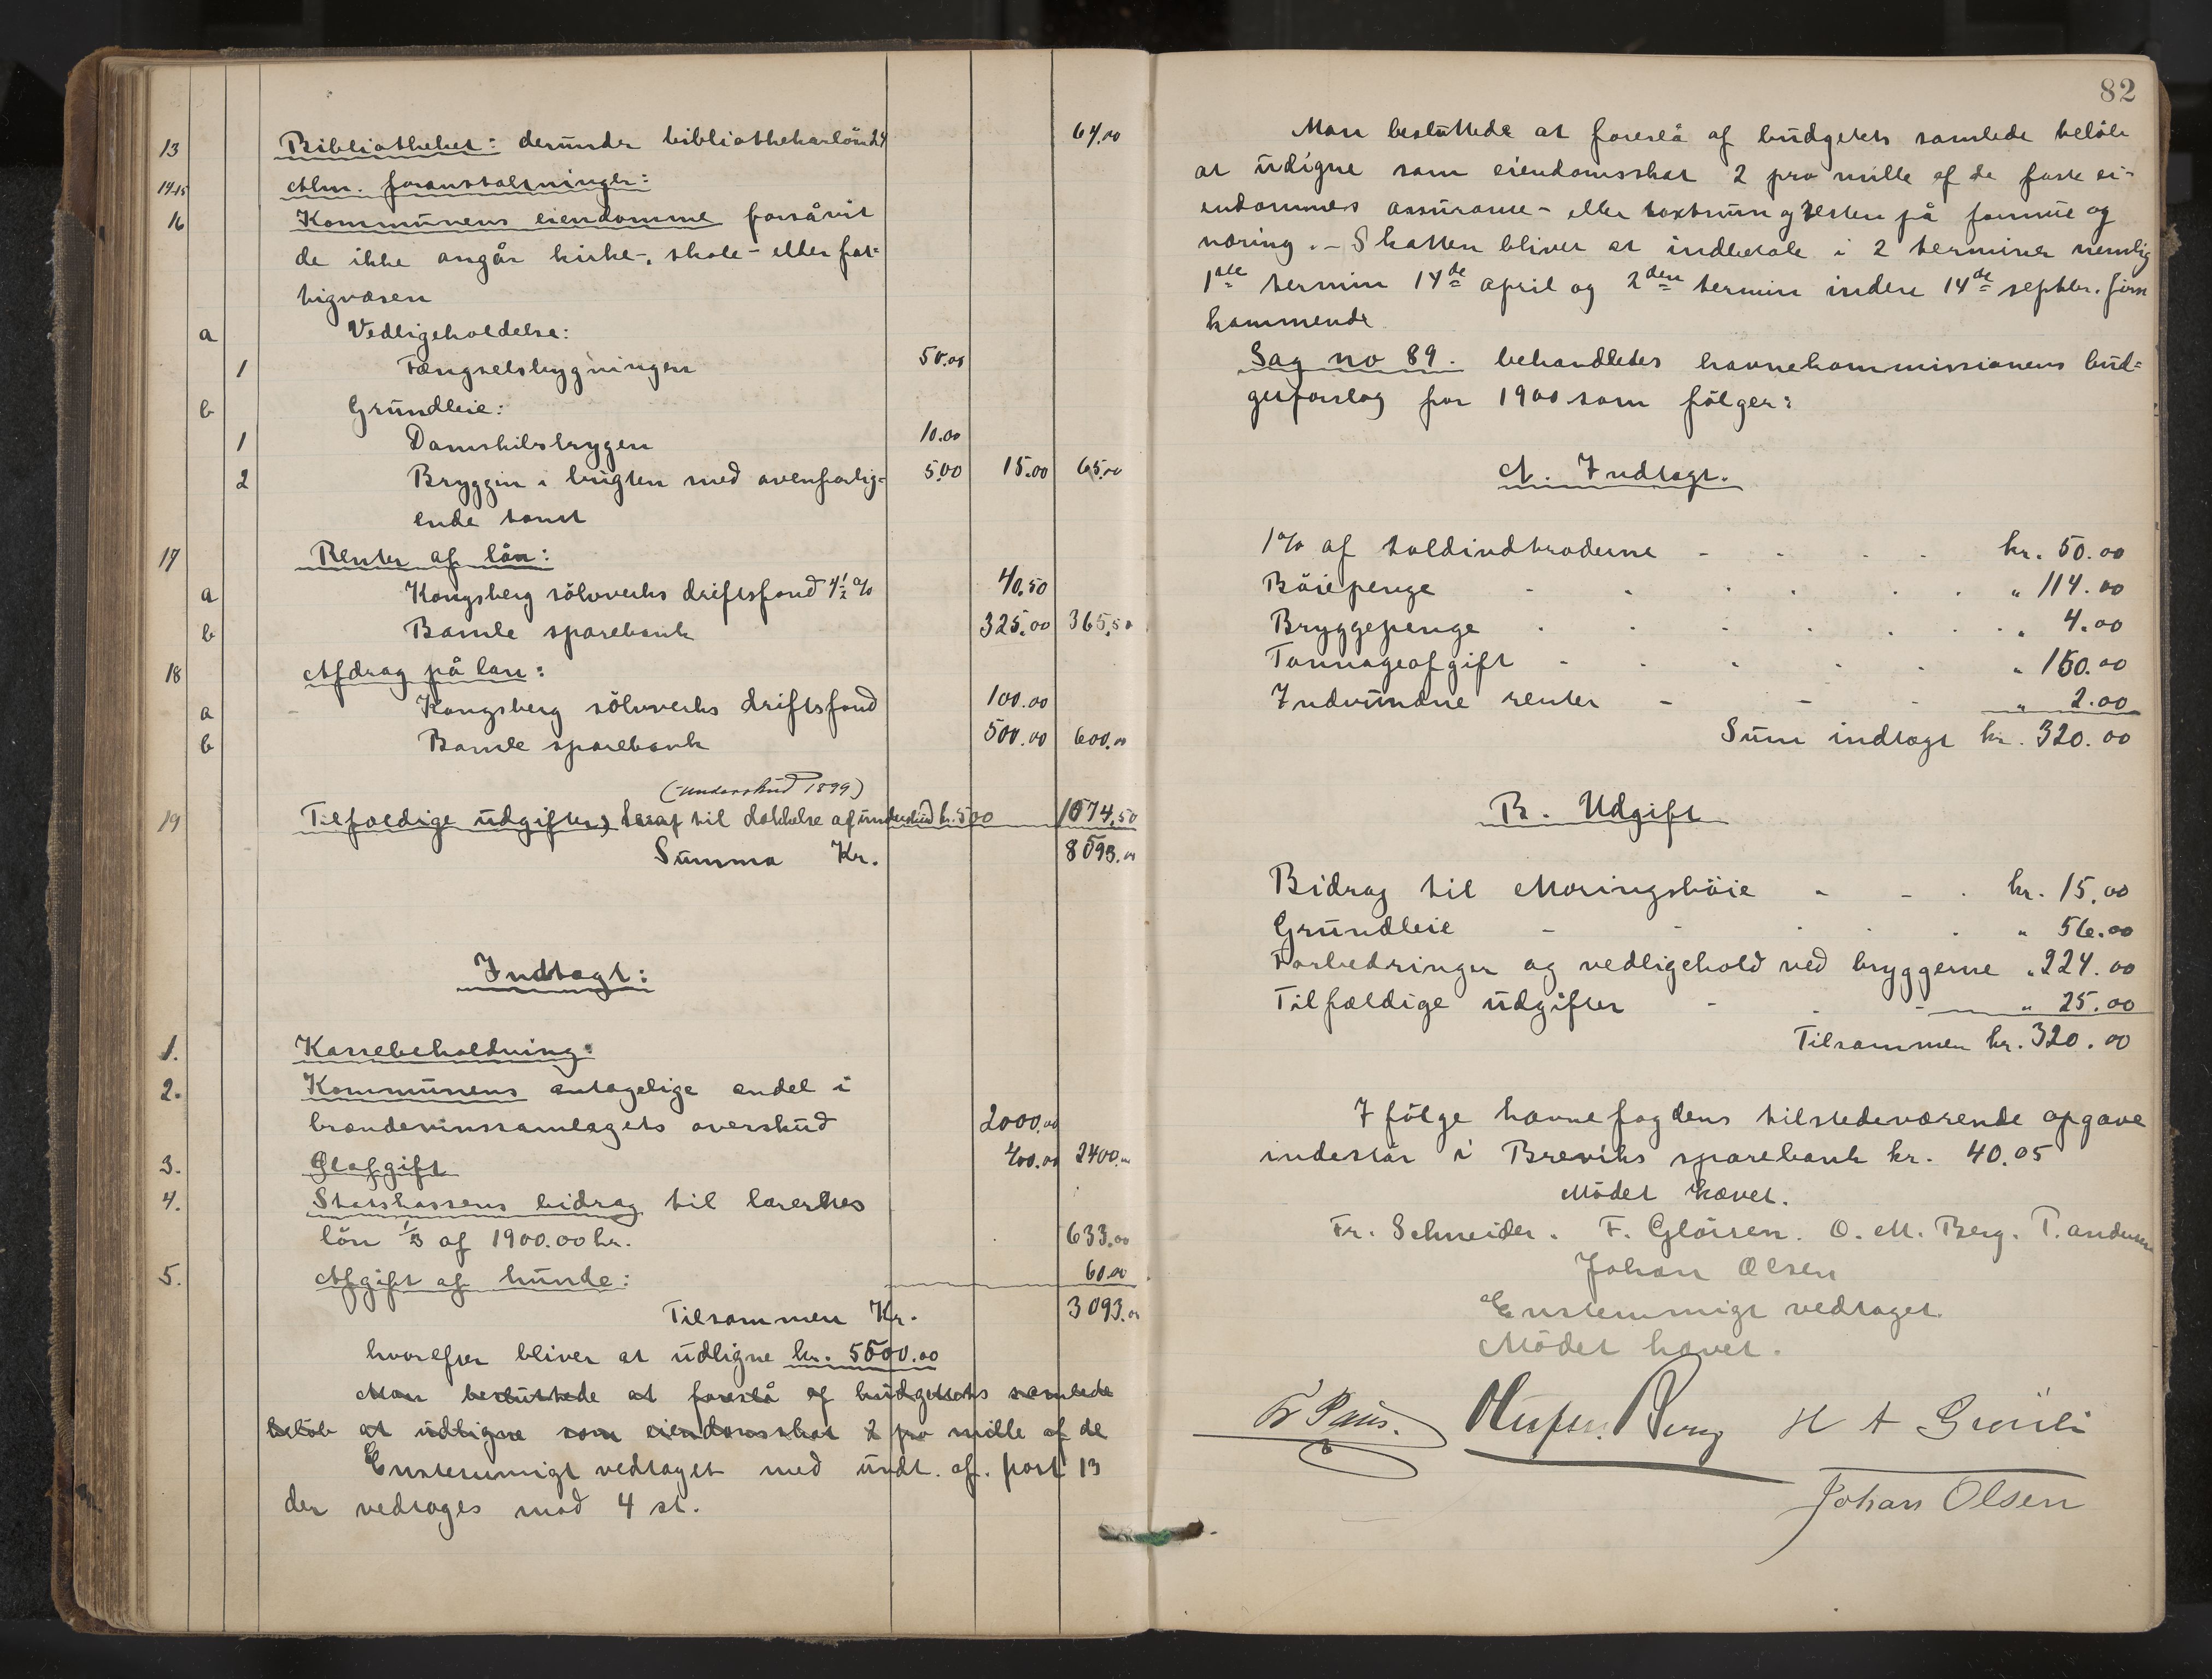 13 Bibliotheket: derunder bibliothekarlön 24 64.00
14.15 Alm. foranstaltninger:
16 Kommunens eiendomme forsåvit
de ikke angår kirke-, skole- eller fat-
tigvæsen
a Vedligeholdelse:
1 Fængselsbygningen 50.00
b Grundleie:
1 Damskibsbryggen 10.00
2 Bryggen i bugten med ovenforlig- 5.00 15.00 65.00
ende tomt
17 Renter af lån:
a Kongsberg sölvverks driftsfond 4½ % 40.50
b Bamle sparebank 325.00 365.50
18 Afdrag på lån:
a Kongsberg sölvverks driftsfond 100.00
b Bamle sparebank 500.00 600.00
(underskud 1899)
19 Tilfældige udgifter, heraf til dækkelse af underskud kr. 500 1574.50
Summa Kr. 8593.00
Indtægt:
1. Kassebeholdning:
2. Kommunens antagelige andel i
brændevinssamlagets overskud 2000.00
3. Ølafgift 400.00 2400.00
4. Statskassens bidrag til lærernes
lön ⅓ af 1900.00 kr. 633.00
5. Afgift af hunde: 60.00
Tilsammen Kr. 3093.00
hvorefter bliver at udligne kr. 5500.00
Man besluttede at foreslå af budgettets samlede
belöb at udligne som eiendomsskat 2 pro mille af de
Enstemmigt vedtaget med undt. af. post 13
der vedtages mod 4 st.
82
Man besluttede at foreslå af budgetets samlede belöb
at udligne som eiendomsskat 2 pro mille af de faste ei-
endommes assurance- eller taxtsum og resten på formue og
næring. - Skatten bliver at indbetale i 2 terminer nemlig
1ste termin 14de april og 2den termin inden 14de septbr. först
kommende
Sag no 89. behandledes havnekommissionens bud-
getforslag for 1900 som fölger:
A. Indtægt.
1% af toldindtræderne - kr. 50.00
Böiepenge - " 114.00
Bryggepenge " 4.00
Tonnageafgift - " 150.00
Indvundne renter - " 2.00
Sum indtægt kr. 320.00
B. Udgift
Bidrag til Moringsböie - kr. 15.00
Grundleie - " 56.00
Forbedringer og vedligehold ved bryggerne " 224.00
Tilfældige udgifter - " 25.00
Tilsammen kr. 320.00
I fölge havnefogdens tilstedeværende opgave
indestår i Breviks sparebank kr. 40.05
Mödet hævet.
Fr. Schneider. F. Glöisen. O. M. Berg. T. Andersen
Johan Olsen
Enstemmigt vedtaget.
Mödet hævet.
Fr Paus. Berg H A
Johan Olsen